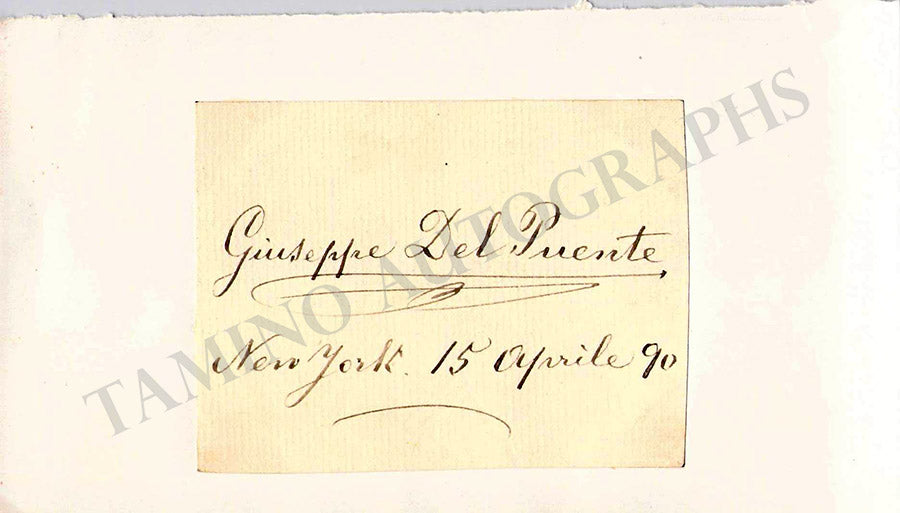 Giuseppe Del Puente
New York. 15 Aprile 90
TAMINO AUTOGRAPHS